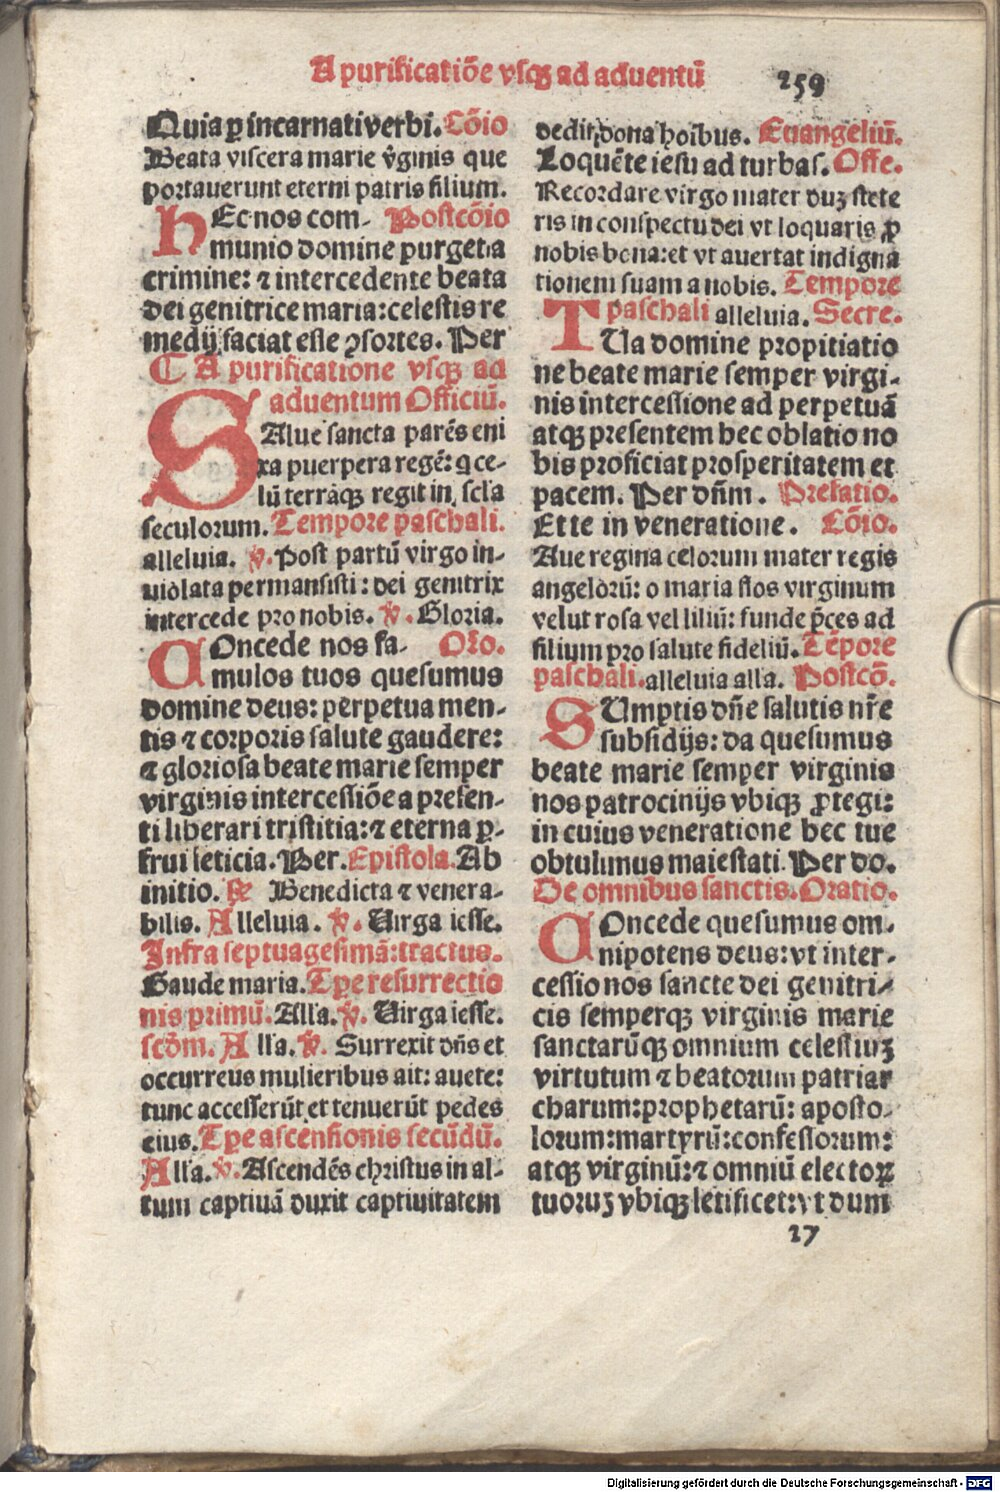 A purificatiōe vsqꝫ ad aduentū
259
Quia ꝑ incarnati verbi. Cōio
Beata viscera marie v̄ginis que
portauerunt eterni patris filium.
HEc nos com- Postcōio
munio domine purget a
crimine: ⁊ intercedente beata
dei genitrice maria: celestis re
medij faciat esse ꝯsortes. Per
C A purificatione vsqꝫ ad
aduentum Officiū.
SAlue sancta parēs eni
xa puerpera regē: q ce-
lū terrāqꝫ regit in scła
seculorum. Tempore paschali.
alleluia. ℣. Post partū virgo in-
uiolata permansisti: dei genitrix
intercede pro nobis. ℣. Gloria.
COncede nos fa- Oro.
mulos tuos quesumus
domine deus: perpetua men-
tis ⁊ corporis salute gaudere:
⁊ gloriosa beate marie semper
virginis intercessiōe a presen-
ti liberari tristitia: ⁊ eterna ꝑ-
frui leticia. Per. Epistola. Ab
initio. Benedicta ⁊ venera-
bilis. Alleluia. ℣. Uirga iesse.
Infra septuagesimā: tractus.
Gaude maria. Tꝑe resurrectio
nis primū. Alla. ℣. Uirga iesse.
scōm. Alla. ℣. Surrexit dn̄s et
occurrens mulieribus ait: auete:
tunc accesserūt et tenuerūt pedes
eius. Tꝑe ascensionis secūdū.
Alla. ℣. Ascendēs christus in al-
tum captiuā duxit captiuitatem
dedit dona hoibus. Euangeliū.
Loquēte iesu ad turbas. Offe.
Recordare virgo mater duꝫ stete
ris in conspectu dei vt loquaris ꝓ
nobis bona: et vt auertat indigna
tionem suam a nobis. Tempore
paschali alleluia. Secre.
TUa domine propitiatio
ne beate marie semper virgi-
nis intercessione ad perpetuā
atqꝫ presentem hec oblatio no
bis proficiat prosperitatem et
pacem. Per dn̄m. Prefatio.
Et te in veneratione. Cōio.
Aue regina celorum mater regis
angelorū: o maria flos virginum
velut rosa vel liliū: funde p̄ces ad
filium pro salute fideliū. Tēpore
paschali. alleluia alla. Postcō.
SUmptis dn̄e salutis nr̄e
subsidijs: da quesumus
beate marie semper virginis
nos patrocinijs vbiqꝫ ꝓtegi:
in cuius veneratione hec tue
obtulimus maiestati. Per do.
De omnibus sanctis. Oratio.
COncede quesumus om-
nipotens deus: vt inter-
cessio nos sancte dei genitri-
cis semperqꝫ virginis marie
sanctarūqꝫ omnium celestiuꝫ
virtutum ⁊ beatorum patriar
charum: prophetarū: aposto-
lorum: martyrū: confessorum:
atqꝫ virginū: ⁊ omniū electoꝝ
tuoruꝫ vbiqꝫ letificet: vt dum
27
Digitalisierung gefördert durch die Deutsche Forschungsgemeinschaft - DFG